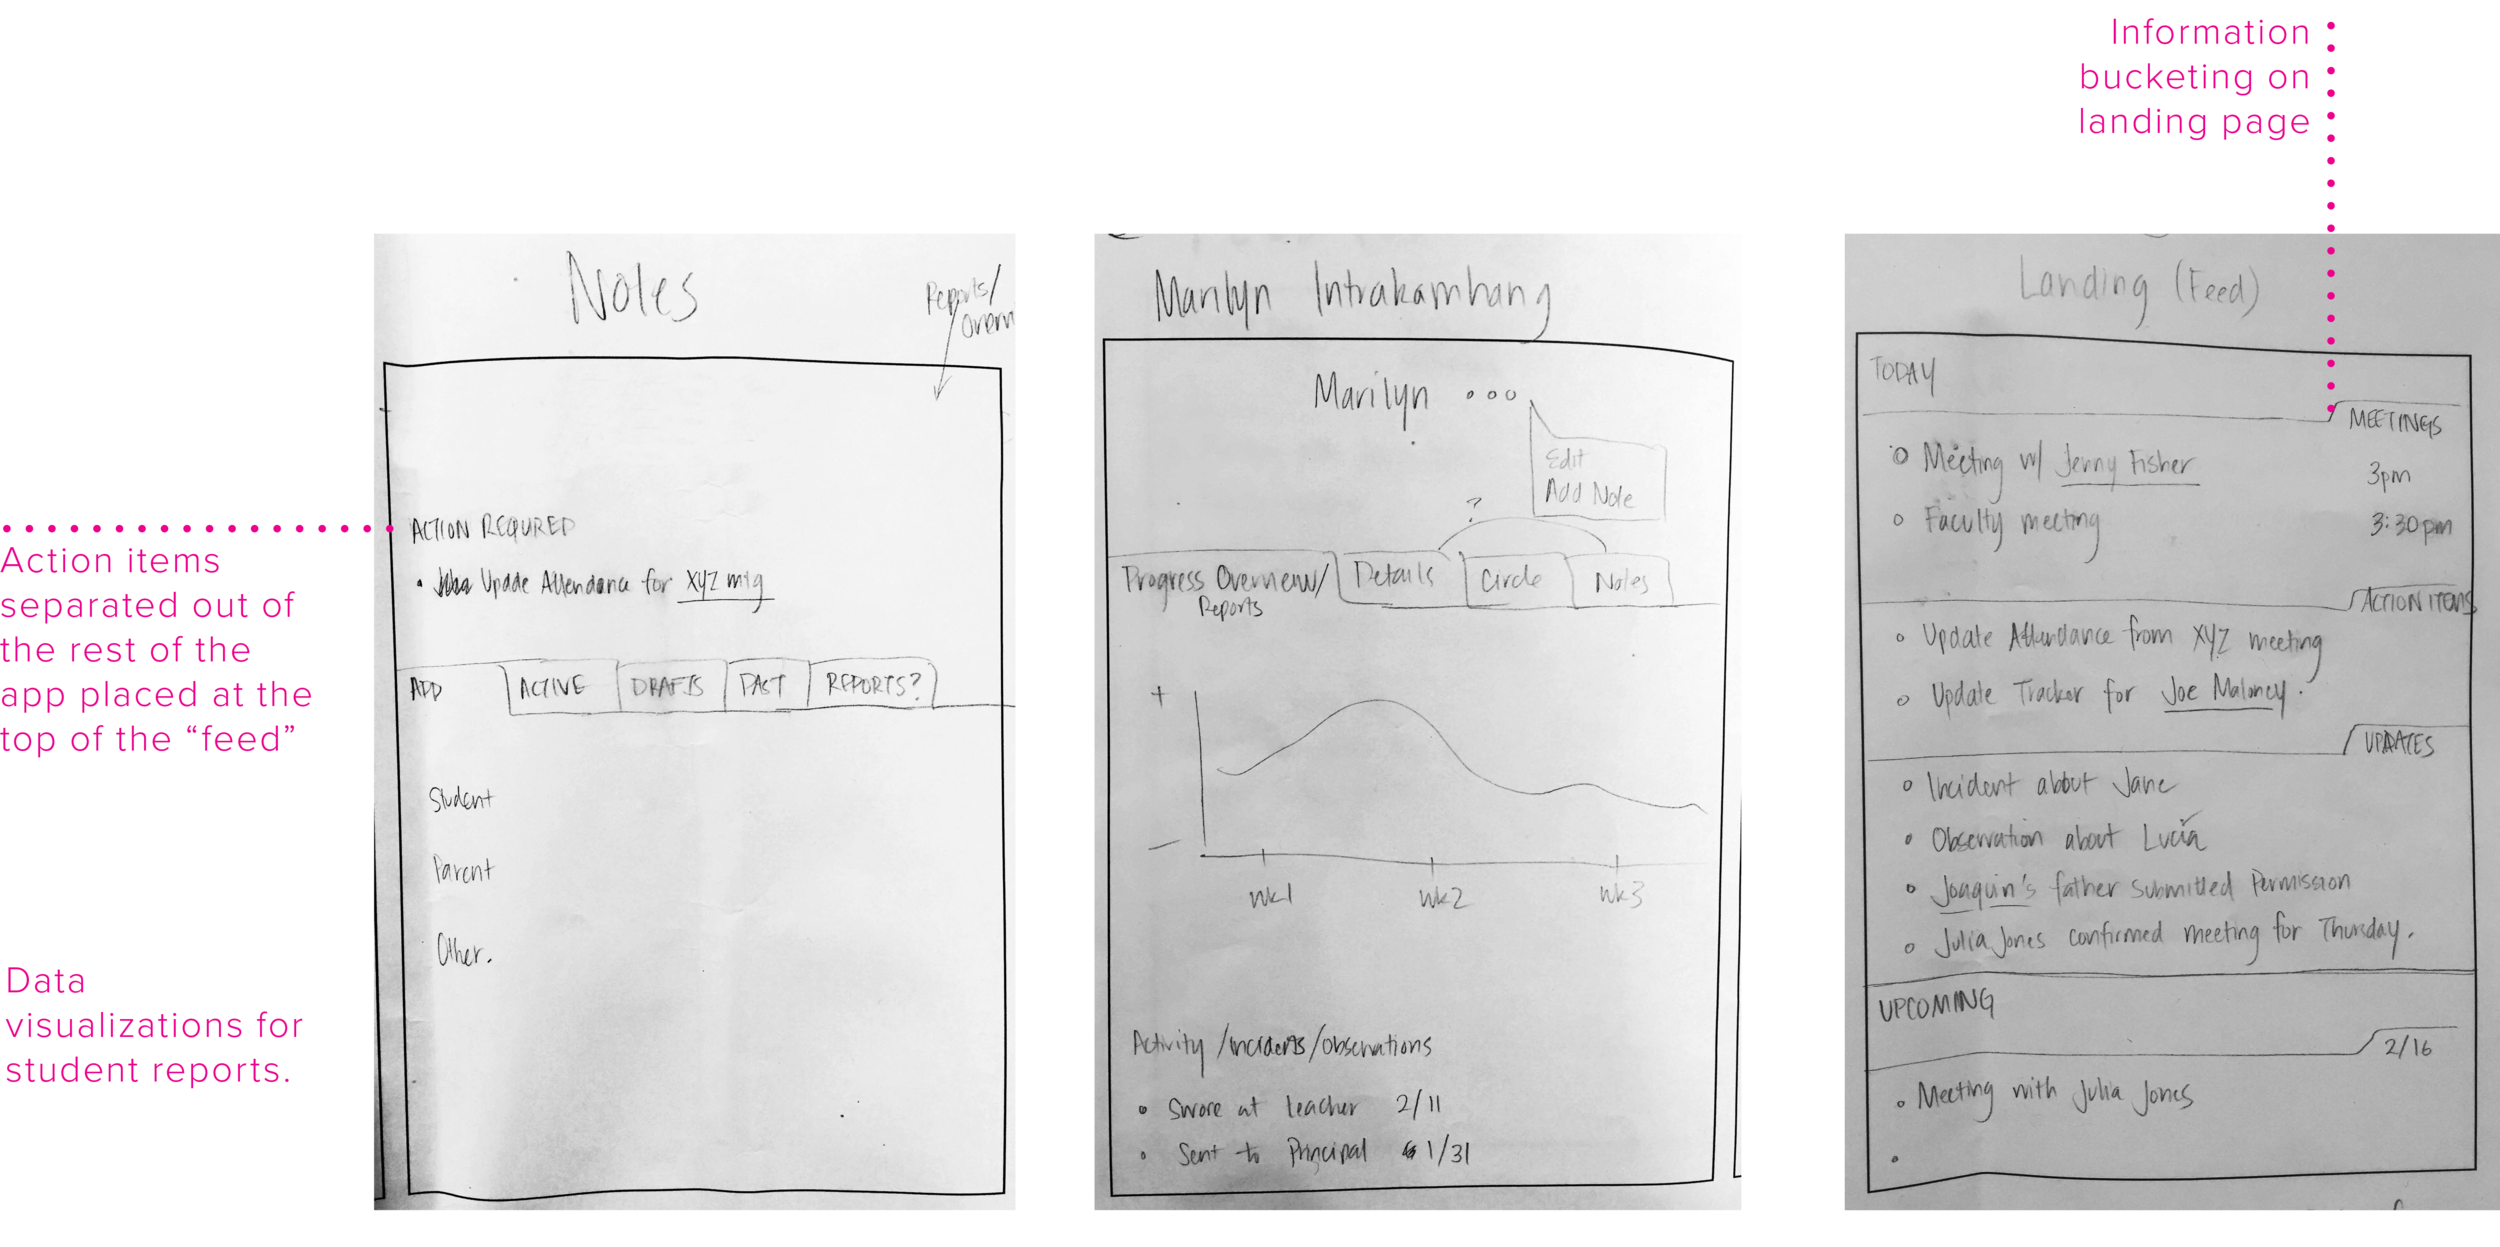 Information
bucketing on
landing page
Action items
separated out of
the rest of the
app placed at the
top of the “feed”
Data
visualizations for
student reports.
Notes
Reports/
Overv
ACTION REQURED
• Update Attendance for XYZ mtg
APP ACTIVE DRAFTS PAST REPORTS?
Student
Parent
Other.
Marilyn Intrakamhang
Marilyn
Edit
Add Note
?
Progress Overview/ Details Circle Notes
Reports
+
—
wk1 wk2 wk3
Activity/incidents/observations
Swore at teacher 2/11
Sent to Principal 1/31
Landing (Feed)
TODAY
MEETINGS
Meeting w/ Jenny Fisher 3pm
Faculty meeting 3:30pm
ACTION ITEMS
Update Attendance from XYZ meeting
Update Tracker for Joe Maloney.
UPDATES
Incident about Jane
Observation about Lucia
Joaquin's father submitted Permission
Julia Jones confirmed meeting for Thursday.
UPCOMING
2/16
Meeting with Julia Jones